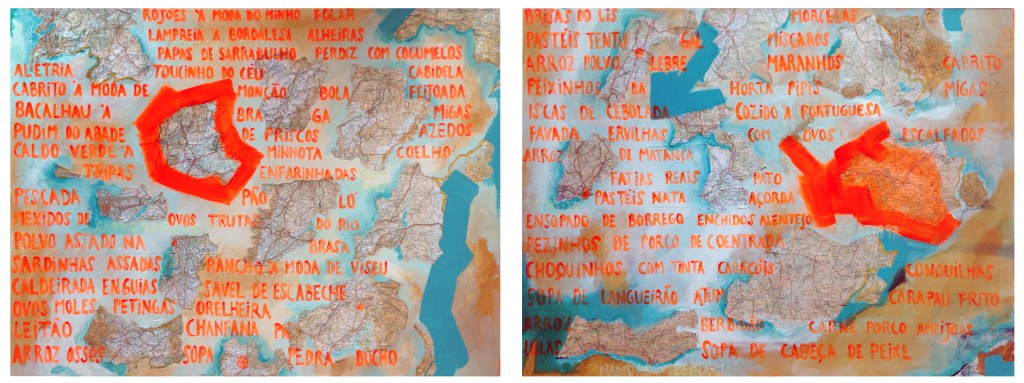 ROJÕES À MODA DO MINHO FOLAR
LAMPREIA À BORDALESA ALHEIRAS
PAPAS DE SARRABULHO PERDIZ COM COGUMELOS
ALETRIA TOUCINHO DO CÉU CABIDELA
CABRITO À MODA DE MONÇÃO BOLA FEIJOADA
BACALHAU À BRA GA MIGAS
PUDIM DO ABADE DE PRISCOS AZEDOS
CALDO VERDE À MINHOTA COELHO
TRIPAS ENFARINHADAS
PESCADA PÃO LO
MEXIDOS DE OVOS TRUTAS DO RIO
POLVO ASSADO NA BRASA
SARDINHAS ASSADAS RANCHO À MODA DE VISEU
CALDEIRADA ENGUIAS SAVEL DE ESCABECHE
OVOS MOLES PETINGAS ORELHEIRA
LEITÃO CHANFANA
ARROZ OSSOS SOPA PEDRA BUCHO
BRISAS DO LIS MORCELAS
PASTÉIS TENTU GAL MÍSCAROS
ARROZ POLVO LEBRE MARANHOS CABRITO
PEIXINHOS DA HORTA PIPIS MIGAS
ISCAS DE CEBOLADA COZIDO À PORTUGUESA
FAVADA ERVILHAS COM OVOS ESCALFADOS
ARROZ DE MATANÇA
FATIAS REAIS PATO
PASTÉIS NATA AÇORDA
ENSOPADO DE BORREGO ENCHIDOS ALENTEJO
BEZINHOS DE PORCO DE COENTRADA
CHOQUINHOS COM TINTA CARACÓIS CONQUILHAS
SOPA DE LANGUEIRÃO ATUM CARAPAU FRITO
ARROZ BERBIGÃO CARNE PORCO AMEIJOAS
SOPA DE CABEÇA DE PEIXE